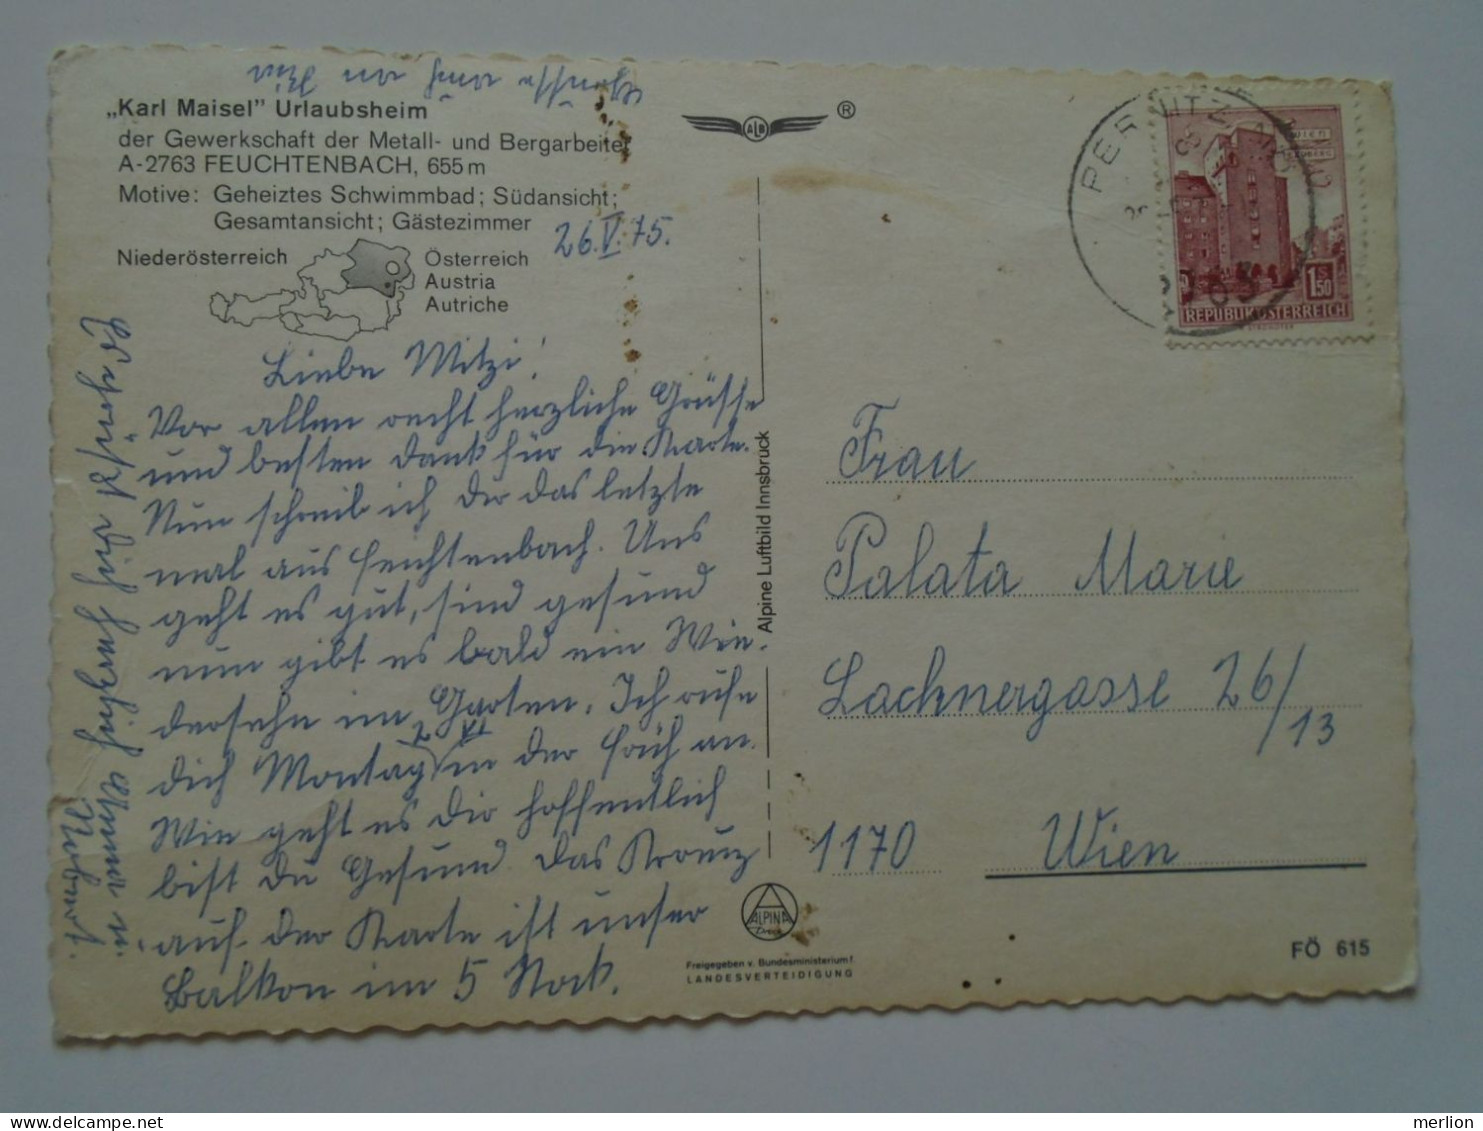 „Karl Maisel" Urlaubsheim
der Gewerkschaft der Metall- und Bergarbeiter
A-2763 FEUCHTENBACH, 655 m
Motive: Geheiztes Schwimmbad; Südansicht;
Gesamtansicht; Gästezimmer
Niederösterreich
Österreich
Austria
Autriche
26.V.75.
Liebe Mitzi!
Vor allen recht herzliche Grüsse
und besten Dank für die Karte.
Nun schreib ich Dir das letzte
mal aus Feichtenbach. Uns
geht es gut, sind gesund
nun gibt es bald ein Wie-
dersehn im Garten. Ich rufe
dich Montag 2 VI in der früh an.
Wie geht es Dir hoffentlich
bist du Gesund. Das Kreuz
auf der Karte ist unser
Balkon im 5 Stock.
Es grüßt dich herzlich
auch an
ALM
®
Alpine Luftbild Innsbruck
ALPINA
Freigegeben v. Bundesministerium f.
LANDESVERTEIDIGUNG
PERNITZ
2763
WIEN
1.50
S
REPUBLIK ÖSTERREICH
Frau
Palata Marie
Lachnergasse 26/13
1170 Wien
FÖ 615
merlion